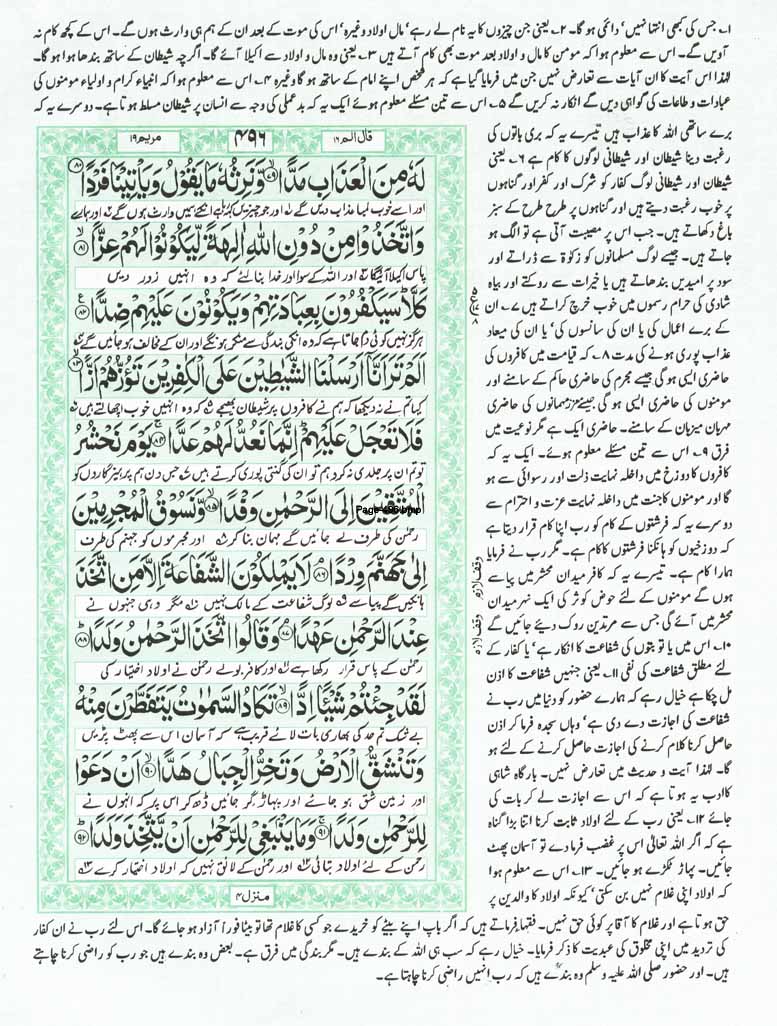 ۱؎ جس کی کبھی انتہا نہیں' دائمی ہو گا۔ ۲؎ یعنی جن چیزوں کا یہ نام لے رہے' مال اولاد وغیرہ' اس کی موت کے بعد ان کے ہم ہی وارث ہوں گے۔ اس کے کچھ کام نہ
آویں گے۔ اس سے معلوم ہوا کہ مومن کا مال و اولاد بعد موت بھی کام آتے ہیں ۳؎ یعنی وہ مال و اولاد سے اکیلا آئے گا۔ اگرچہ شیطان کے ساتھ بندھا ہوا ہو گا۔
لہٰذا اس آیت کا ان آیات سے تعارض نہیں جن میں فرمایا گیا ہے کہ ہر شخص اپنے امام کے ساتھ ہو گا وغیرہ ۴؎ اس سے معلوم ہوا کہ انبیاء کرام و اولیاء مومنوں کی
عبادات و طاعات کی گواہی دیں گے انکار نہ کریں گے ۵؎ اس سے تین مسئلے معلوم ہوئے ایک یہ کہ بدعملی کی وجہ سے انسان پر شیطان مسلط ہوتا ہے۔ دوسرے یہ کہ
برے ساتھی اللہ کا عذاب ہیں تیسرے یہ کہ بری باتوں کی
رغبت دینا شیطان اور شیطانی لوگوں کا کام ہے ۶؎ یعنی
شیطان اور شیطانی لوگ کفار کو شرک اور کفر اور گناہوں
پر خوب رغبت دیتے ہیں اور گناہوں پر طرح طرح کے سبز
باغ دکھاتے ہیں۔ جب اس پر مصیبت آتی ہے تو الگ ہو
جاتے ہیں۔ جیسے لوگ مسلمانوں کو زکوٰۃ سے ڈراتے اور
سود پر امیدیں بندھاتے ہیں یا خیرات سے روکتے اور بیاہ
شادی کی حرام رسموں میں خوب خرچ کراتے ہیں ۷؎ ان
کے برے اعمال کی یا ان کی سانسوں کی' یا ان کی میعاد
عذاب پوری ہونے کی مدت ۸؎ کہ قیامت میں کافروں کی
حاضری ایسی ہو گی جیسے مجرم کی حاضری حاکم کے سامنے اور
مومنوں کی حاضری ایسی ہو گی جیسے معزز مہمانوں کی حاضری
مہربان میزبان کے سامنے۔ حاضری ایک ہے مگر نوعیت میں
فرق ۹؎ اس سے تین مسئلے معلوم ہوئے۔ ایک یہ کہ
کافروں کا دوزخ میں داخلہ نہایت ذلت اور رسوائی سے ہو
گا اور مومنوں کا جنت میں داخلہ نہایت عزت و احترام سے
دوسرے یہ کہ فرشتوں کے کام کو رب اپنا کام قرار دیتا ہے
کہ دوزخیوں کو ہانکنا فرشتوں کا کام ہے۔ مگر رب نے فرمایا
ہمارا کام ہے۔ تیسرے یہ کہ کافر میدان محشر میں پیاسے
ہوں گے مومنوں کے لئے حوض کوثر کی ایک نہر میدان
محشر میں آئے گی جس سے مرتدین روک دیئے جائیں گے
۱۰؎ اس میں یا تو بتوں کی شفاعت کا انکار ہے' یا کفار کے
لئے مطلق شفاعت کی نفی ۱۱؎ یعنی جنہیں شفاعت کا اذن
مل چکا ہے خیال رہے کہ ہمارے حضور کو دنیا میں رب نے
شفاعت کی اجازت دے دی ہے' وہاں سجدہ فرما کر اذن
حاصل کرنا کلام کرنے کی اجازت حاصل کرنے کے لئے ہو
گا۔ لہٰذا آیت و حدیث میں تعارض نہیں۔ بارگاہ شاہی
کا ادب یہ ہوتا ہے کہ اس سے اجازت لے کر بات کی
جائے ۱۲؎ یعنی رب کے لئے اولاد ثابت کرنا اتنا بڑا گناہ
ہے کہ اگر اللہ تعالیٰ اس پر غضب فرما دے تو آسمان پھٹ
جائیں۔ پہاڑ ٹکڑے ہو جائیں۔ ۱۳؎ اس سے معلوم ہوا
کہ اولاد اپنی غلام نہیں بن سکتی' کیونکہ اولاد کا والدین پر
حق ہوتا ہے اور غلام کا آقا پر کوئی حق نہیں۔ فقہا فرماتے ہیں کہ اگر باپ اپنے بیٹے کو خریدے جو کسی کا غلام تھا تو بیٹا فوراً آزاد ہو جائے گا۔ اس لئے رب نے ان کفار
کی تردید میں اپنی مخلوق کی عبدیت کا ذکر فرمایا۔ خیال رہے کہ سب ہی اللہ کے بندے ہیں۔ مگر بندگی میں فرق ہے۔ بعض وہ بندے ہیں جو رب کو راضی کرنا چاہتے
ہیں۔ اور حضور صلی اللہ علیہ وسلم وہ بندے ہیں کہ رب انہیں راضی کرنا چاہتا ہے۔
قال الم ۱۶
۴۹۶
مریم ۱۹
لَهٗ مِنَ الْعَذَابِ مَدًّا ۙ۷۹ وَّنَرِثُهٗ مَا يَقُوْلُ وَيَاْتِيْنَا فَرْدًا ۸۰
اور اسے خوب لمبا عذاب دیں گے اور جو چیزیں کہہ رہا ہے انکے ہمیں وارث ہوں گے اور ہمارے
وَاتَّخَذُوْا مِنْ دُوْنِ اللّٰهِ اٰلِهَةً لِّيَكُوْنُوْا لَهُمْ عِزًّا ۙ۸۱
پاس اکیلا آئیگا اور اللہ کے سوا اور خدا بنا لئے کہ وہ انہیں زور دیں
كَلَّا ؕ سَيَكْفُرُوْنَ بِعِبَادَتِهِمْ وَيَكُوْنُوْنَ عَلَيْهِمْ ضِدًّا ۸۲
ہرگز نہیں کوئی دم جاتا ہے کہ وہ انکی بندگی سے منکر ہونگے اور ان کے مخالف ہو جائیں گے
اَلَمْ تَرَ اَنَّاۤ اَرْسَلْنَا الشَّيٰطِيْنَ عَلَى الْكٰفِرِيْنَ تَؤُزُّهُمْ اَزًّا ۙ۸۳
کیا تم نے نہ دیکھا کہ ہم نے کافروں پر شیطان بھیجے کہ وہ انہیں خوب اچھالتے ہیں
فَلَا تَعْجَلْ عَلَيْهِمْ ؕ اِنَّمَا نَعُدُّ لَهُمْ عَدًّا ۸۴ يَوْمَ نَحْشُرُ
تو تم ان پر جلدی نہ کرو ہم تو ان کی گنتی پوری کرتے ہیں جس دن ہم پرہیزگاروں کو
الْمُتَّقِيْنَ اِلَى الرَّحْمٰنِ وَفْدًا ۙ۸۵ وَّنَسُوْقُ الْمُجْرِمِيْنَ
رحمٰن کی طرف لے جائیں گے مہمان بنا کر اور مجرموں کو جہنم کی طرف
اِلٰى جَهَنَّمَ وِرْدًا ۘ۸۶ لَا يَمْلِكُوْنَ الشَّفَاعَةَ اِلَّا مَنِ اتَّخَذَ
ہانکیں گے پیاسے لوگ شفاعت کے مالک نہیں مگر وہی جنہوں نے
عِنْدَ الرَّحْمٰنِ عَهْدًا ۘ۸۷ وَقَالُوا اتَّخَذَ الرَّحْمٰنُ وَلَدًا ؕ۸۸
رحمٰن کے پاس قرار رکھا ہے اور کافر بولے رحمٰن نے اولاد اختیار کی
لَقَدْ جِئْتُمْ شَيْـًٔا اِدًّا ۙ۸۹ تَكَادُ السَّمٰوٰتُ يَتَفَطَّرْنَ مِنْهُ
بے شک تم حد کی بھاری بات لائے قریب ہے کہ آسمان اس سے پھٹ پڑیں
وَتَنْشَقُّ الْاَرْضُ وَتَخِرُّ الْجِبَالُ هَدًّا ۙ۹۰ اَنْ دَعَوْا
اور زمین شق ہو جائے اور پہاڑ گر جائیں ڈھ کر اس پر کہ انہوں نے
لِلرَّحْمٰنِ وَلَدًا ۚ۹۱ وَمَا يَنْۢبَغِيْ لِلرَّحْمٰنِ اَنْ يَّتَّخِذَ وَلَدًا ؕ۹۲
رحمٰن کے لئے اولاد بتائی اور رحمٰن کے لائق نہیں کہ اولاد اختیار کرے
منزل ۴
وقف لازم
وقف لازم